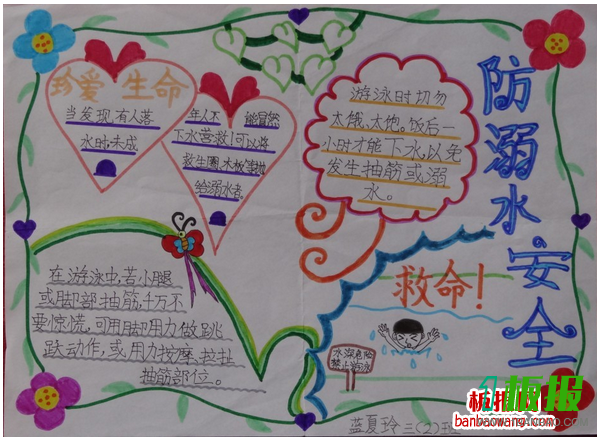 珍爱生命
当发现有人落
水时,未成
年人不能冒然
下水营救!可以将
救生圈、木板等抛
给溺水者.
游泳时切勿
太饿、太饱。饭后一
小时才能下水,以免
发生抽筋或溺
水。
防溺水安全
在游泳中,苦小腿
或脚部抽筋,千万不
要惊慌,可用脚用力做跳
跃动作,或用力按摩、拉扯
抽筋部位。
救命!
水深危险
禁止游泳
蓝夏玲 三(2)班
板报